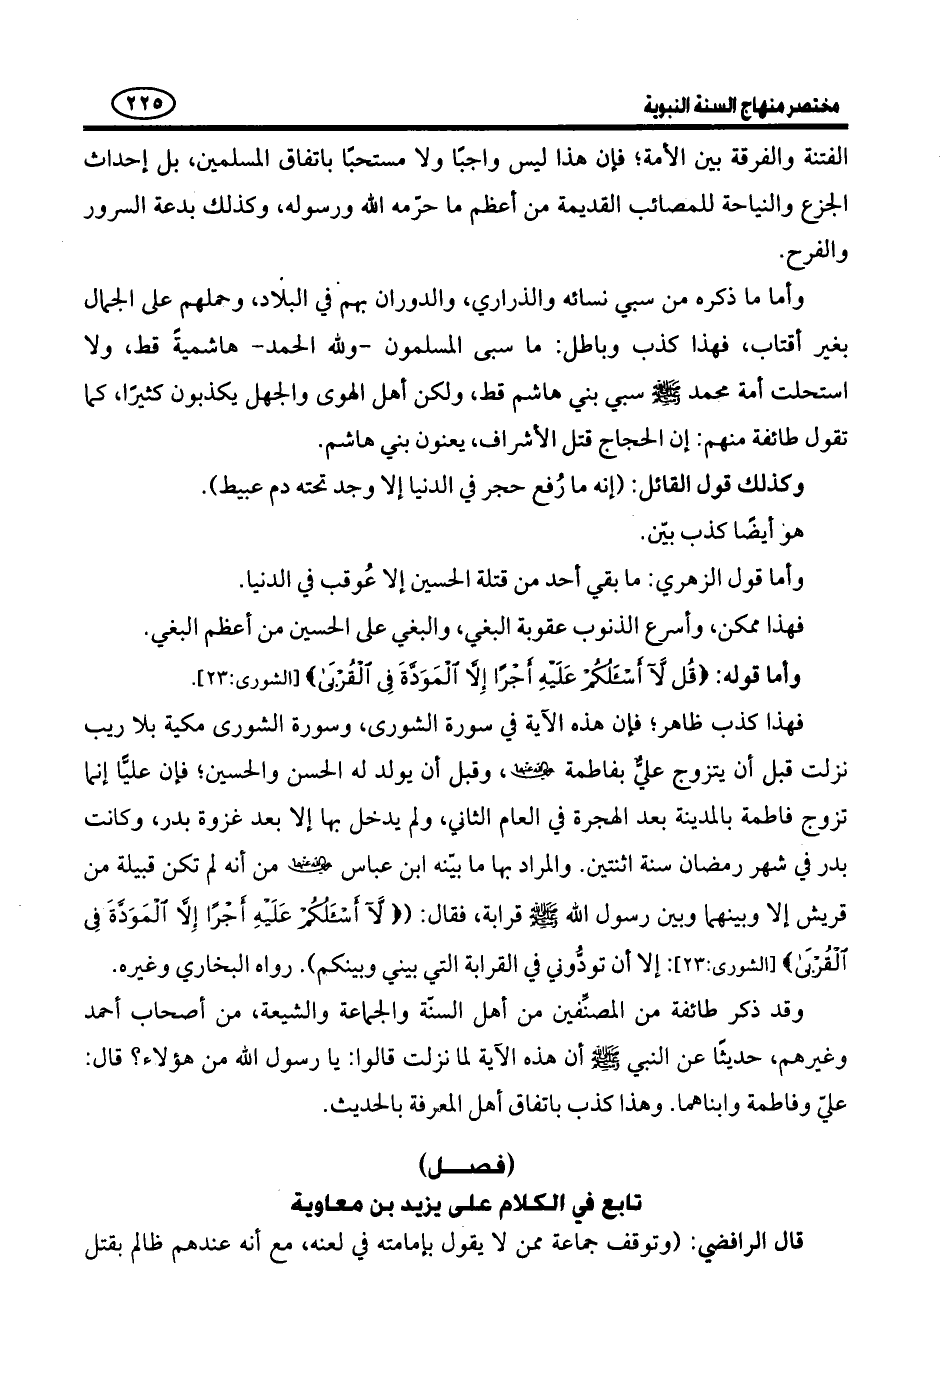 مختصر منهاج السنة النبوية
٢٢٥
الفتنة والفرقة بين الأمة؛ فإن هذا ليس واجبًا ولا مستحبًا باتفاق المسلمين، بل إحداث
الجزع والنياحة للمصائب القديمة من أعظم ما حرّمه الله ورسوله، وكذلك بدعة السرور
والفرح.
وأما ما ذكره من سبي نسائه والذراري، والدوران بهم في البلاد، وحملهم على الجمال
بغير أقتاب، فهذا كذب وباطل: ما سبى المسلمون -ولله الحمد- هاشميةً قط، ولا
استحلت أمة محمد ﷺ سبي بني هاشم قط، ولكن أهل الهوى والجهل يكذبون كثيرًا، كما
تقول طائفة منهم: إن الحجاج قتل الأشراف، يعنون بني هاشم.
وكذلك قول القائل: (إنه ما رُفع حجر في الدنيا إلا وجد تحته دم عبيط).
هو أيضًا كذب بيّن.
وأما قول الزهري: ما بقي أحد من قتلة الحسين إلا عُوقب في الدنيا.
فهذا ممكن، وأسرع الذنوب عقوبة البغي، والبغي على الحسين من أعظم البغي.
وأما قوله: ﴿قُل لَّآ أَسْـَٔلُكُمْ عَلَيْهِ أَجْرًا إِلَّا ٱلْمَوَدَّةَ فِى ٱلْقُرْبَىٰ﴾ [الشورى:٢٣].
فهذا كذب ظاهر؛ فإن هذه الآية في سورة الشورى، وسورة الشورى مكية بلا ريب
نزلت قبل أن يتزوج عليٌّ بفاطمة رضي الله عنهما، وقبل أن يولد له الحسن والحسين؛ فإن عليًّا إنما
تزوج فاطمة بالمدينة بعد الهجرة في العام الثاني، ولم يدخل بها إلا بعد غزوة بدر، وكانت
بدر في شهر رمضان سنة اثنتين. والمراد بها ما بيّنه ابن عباس رضي الله عنهما من أنه لم تكن قبيلة من
قريش إلا وبينهما وبين رسول الله ﷺ قرابة، فقال: (﴿لَّآ أَسْـَٔلُكُمْ عَلَيْهِ أَجْرًا إِلَّا ٱلْمَوَدَّةَ فِى
ٱلْقُرْبَىٰ﴾ [الشورى:٢٣]: إلا أن تودُّوني في القرابة التي بيني وبينكم). رواه البخاري وغيره.
وقد ذكر طائفة من المصنِّفين من أهل السنّة والجماعة والشيعة، من أصحاب أحمد
وغيرهم، حديثًا عن النبي ﷺ أن هذه الآية لما نزلت قالوا: يا رسول الله من هؤلاء؟ قال:
عليّ وفاطمة وابناهما. وهذا كذب باتفاق أهل المعرفة بالحديث.
(فصـــل)
تابع في الكلام على يزيد بن معاوية
قال الرافضي: (وتوقف جماعة ممن لا يقول بإمامته في لعنه، مع أنه عندهم ظالم بقتل